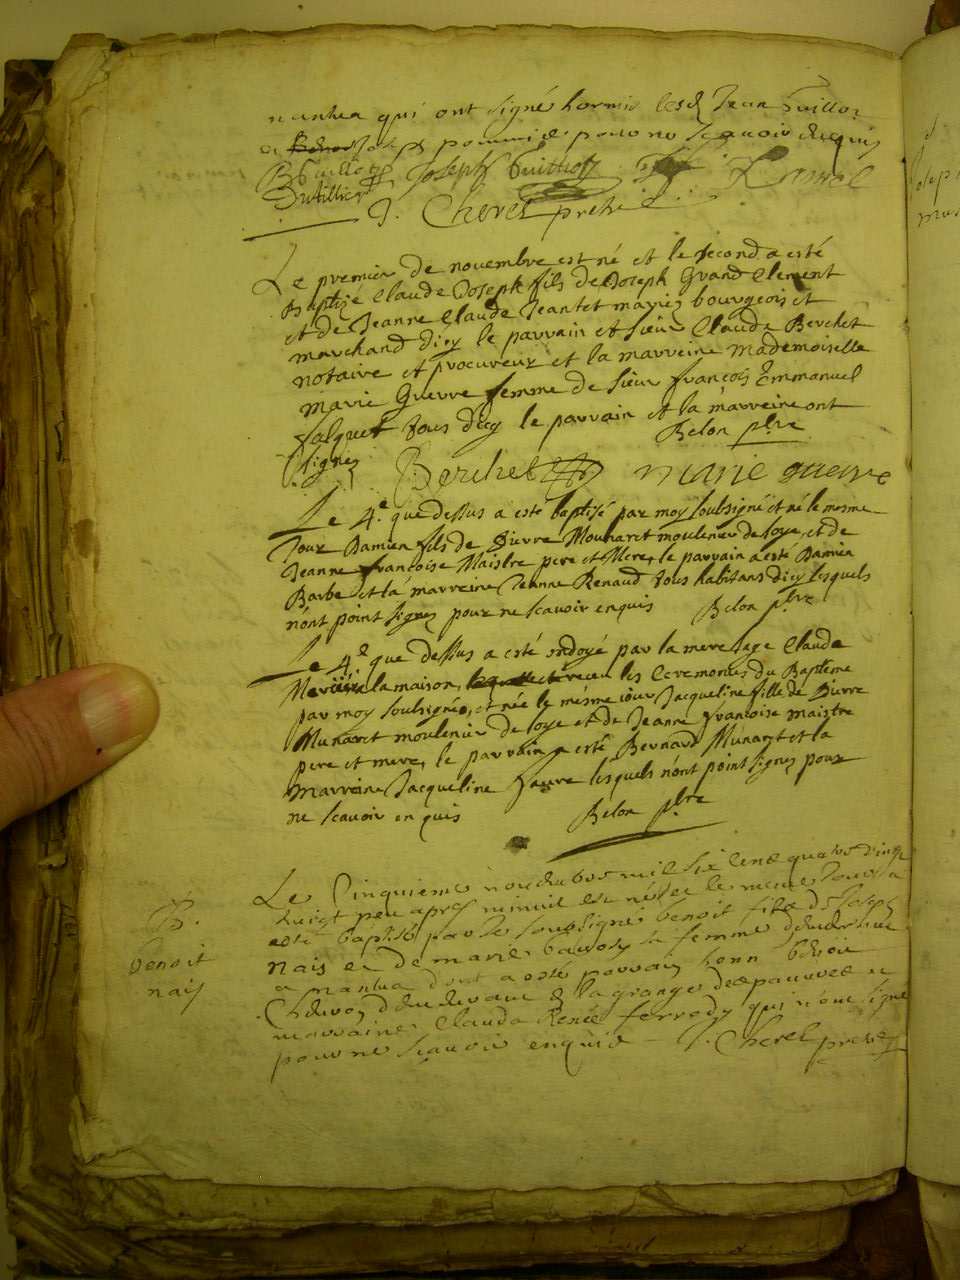 nantua qui ont signé hormis lesd Jean Guillot
et Joseph pour ne scavoir enquis
B Guillot Joseph Guillot
Dutillier
J. Cherel pretre
Le premier de novembre est né et le second a esté
Baptizé Claude Joseph fils de Joseph Grand Clement
et de Jeanne Claude Jeantet mariez bourgeois et
marchand dicy le parrain et sieur Claude Berchet
notaire et procureur et la marreine Mademoiselle
Marie Guerre femme de sieur françois Emmanuel
Jalquet tous dicy le parrain et la marreine ont
signez Belon pbre
Berchet marie guerre
Le 4.e que dessus a esté baptisé par moy soubsigné et né le mesme
Jour Damien fils de Pierre Mounaret moulenier de Joye, et de
Jeanne françoise Maistre pere et Mere, le parrain a esté Damien
Barbe et la marreine Jeanne Renaud tous habitans dicy lesquels
n'ont point signez pour ne scavoir enquis Belon pbre
Le 4.e que dessus a esté ondoyé par la mere sage Claude
Mercier a la maison, receu les Ceremonies du Baptême
par moy soubsigné, et née le mésme iour Jacqueline fille de Pierre
Munaret moulenier de Joye et de Jeanne françoise maistre
pere et mere, le parrain a esté Bernard Munaret et la
Marreine Jacqueline favre lesquels n'ont point signez pour
ne scavoir en quis Belon pbre
Le Cinquieme novembre mil six cent quatre vingt
huict peu apres minuit est né et le meme Jour a
esté baptisé par le soubsigné benoit filz de Joseph
nais et de marie sa femme
a nantua dont a esté parrain honn benoit
de la grange des pauvres et
marraine Clauda Renée ferrody qui n'ont signé
pour ne scavoir enquis J. Cherel pretre
B.
benoit
nais